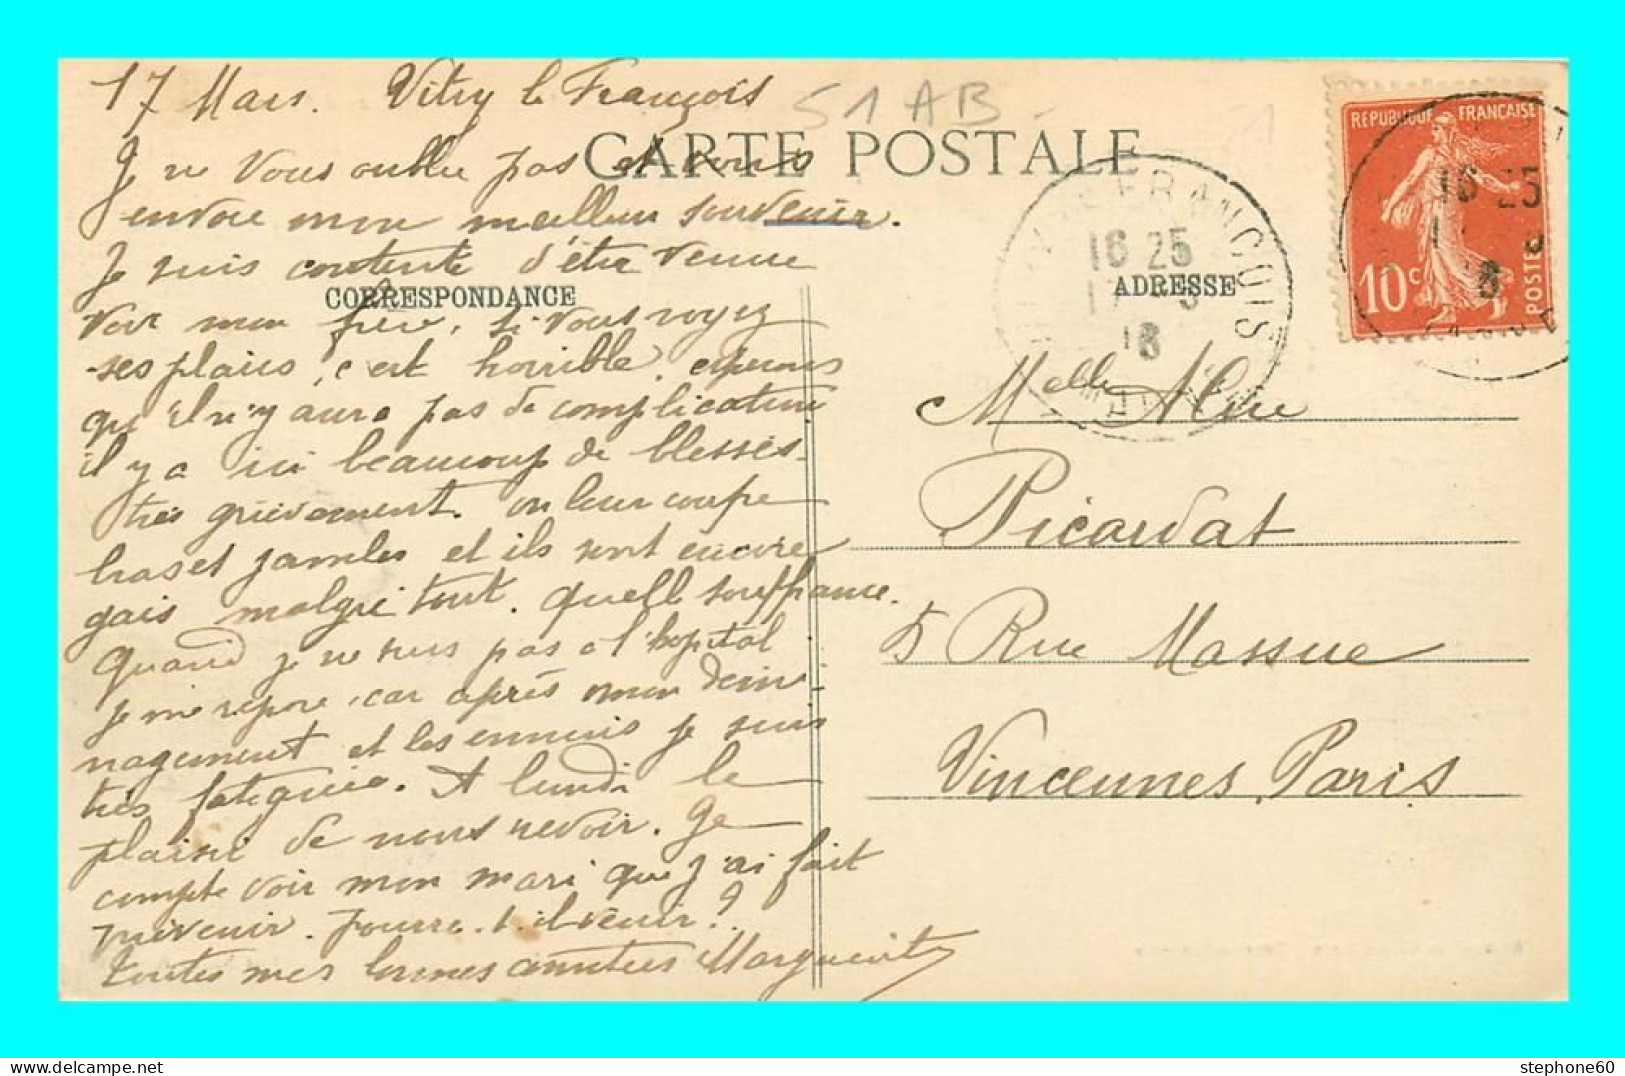 17 Mars. Vitry le François
51 AB
CARTE POSTALE
Je ne Vous oublie pas et vous
envoie mon meilleur souvenir.
Je suis contente d'être venue
CORRESPONDANCE
voir mon frère, si vous voyez
ses plaies, c'est horrible. espérons
qu'il n'y aura pas de complications
il y a ici beaucoup de blessés
très grièvement. on leur coupe
bras et jambes et ils sont encore
gais malgré tout. quelle souffrance.
Quand je ne suis pas à l'hopital
je me repose, car après mon démé-
nagement et les ennuis je suis
très fatiguée. A lundi le
plaisir de vous revoir. Je
compte voir mon mari que j'ai fait
prévenir. Pourra-t-il venir?
toutes mes bonnes amitiées Marguerite
VITRY-LE-FRANCOIS
16 25
17 -3
16
MARNE
ADRESSE
REPUBLIQUE FRANÇAISE
10c
POSTES
16 25
Melle Aline
Picardat
5 Rue Massue
Vincennes, Paris
stephone60